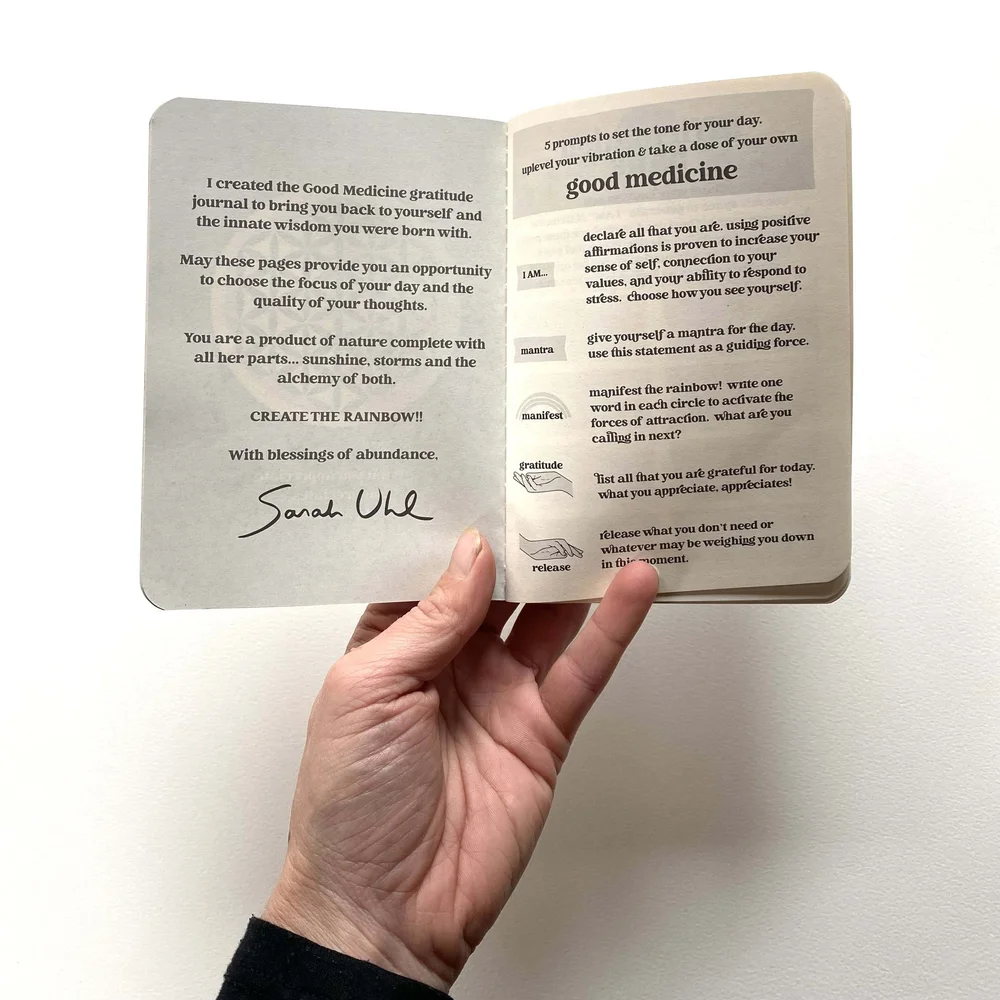 I created the Good Medicine gratitude
journal to bring you back to yourself and
the innate wisdom you were born with.
May these pages provide you an opportunity
to choose the focus of your day and the
quality of your thoughts.
You are a product of nature complete with
all her parts... sunshine, storms and the
alchemy of both.
CREATE THE RAINBOW!!
With blessings of abundance,
Sarah Uhl
5 prompts to set the tone for your day.
uplevel your vibration & take a dose of your own
good medicine
I AM...
declare all that you are. using positive
affirmations is proven to increase your
sense of self, connection to your
values, and your ability to respond to
stress. choose how you see yourself.
mantra
give yourself a mantra for the day.
use this statement as a guiding force.
manifest
manifest the rainbow! write one
word in each circle to activate the
forces of attraction. what are you
calling in next?
gratitude
list all that you are grateful for today.
what you appreciate, appreciates!
release
release what you don't need or
whatever may be weighing you down
in this moment.